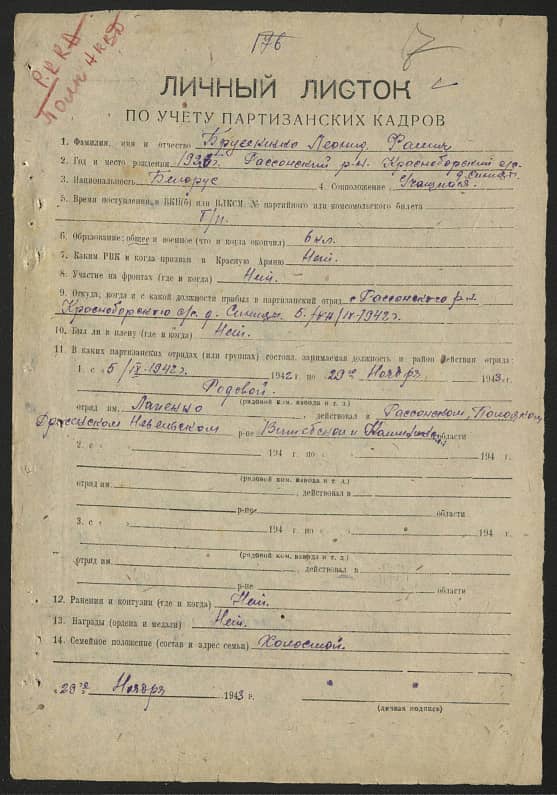 176
Р.К.К.А
Полк НКВД
ЛИЧНЫЙ ЛИСТОК
ПО УЧЕТУ ПАРТИЗАНСКИХ КАДРОВ
1. Фамилия, имя и отчество Леонид
2. Год и место рождения Россонский р-н. Красноборский с/с.
3. Национальность Белорус 4. Соцположение Учащийся.
5. Время поступления в ВКП(б) или ВЛКСМ, № партийного или комсомольского билета
Б/п.
6. Образование: общее и военное (что и когда окончил) 6 кл.
7. Каким РВК и когда призван в Красную Армию Нет.
8. Участие на фронтах (где и когда) Нет.
9. Откуда, когда и с какой должности прибыл в партизанский отряд с Россонского р-н.
Красноборского с/с. д. 5. IX-1942 г.
10. Был ли в плену (где и когда) Нет.
11. В каких партизанских отрядах (или группах) состоял, занимаемая должность и район действия отряда:
1. с 5/IX-1942 г. 1942 г. по 29го Ноября 1943 г.
Рядовой.
(рядовой ком. взвода и т. д.)
отряд им. Лапенко, действовал в Россонском, Полоцком,
Невельском р-не Витебской и Калининской области
2. с 194 г. по 194 г.
(рядовой ком. взвода и т. д.)
отряд им. , действовал в
р-не области
3. с 194 г. по 194 г.
(рядовой ком. взвода и т. д.)
отряд им. , действовал в
р-не области
12. Ранения и контузии (где и когда) Нет.
13. Награды (ордена и медали) Нет.
14. Семейное положение (состав и адрес семьи) Холостой.
29го Ноября 1943 г.
(личная подпись)